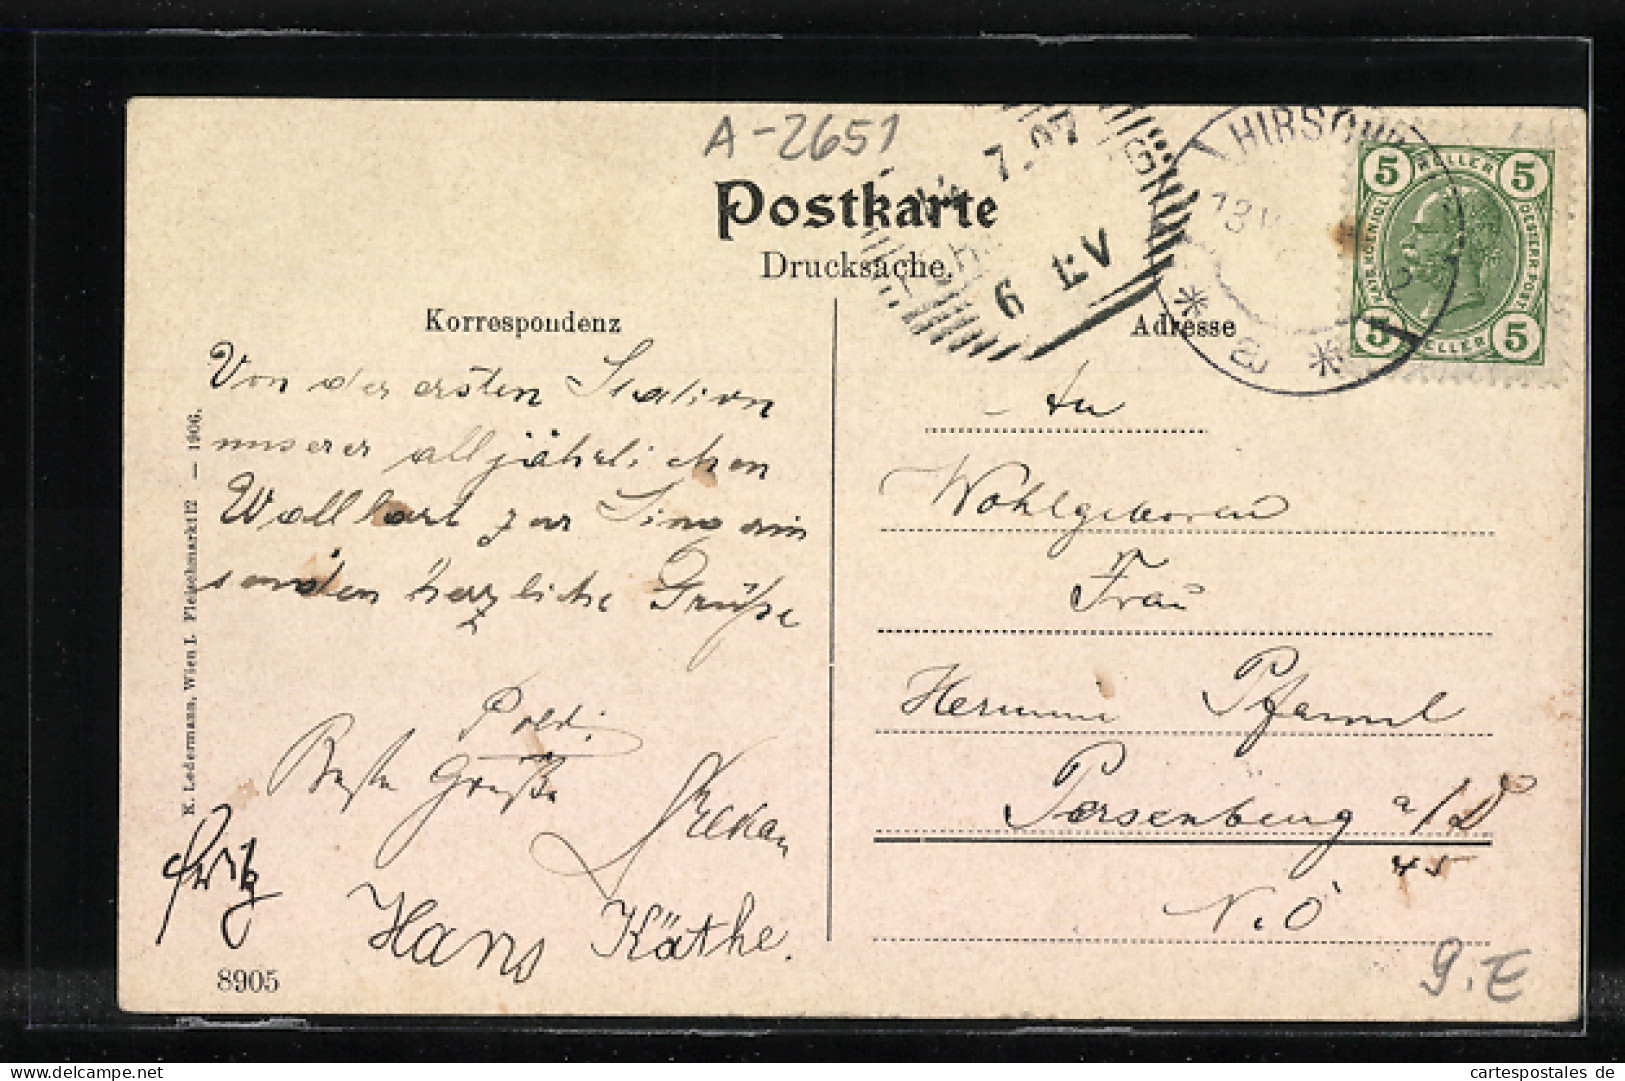 A-2651
Postkarte
Drucksache.
7-07
6 EV
HIRSCH
13 V
a
5 HELLER 5
KAIS. KOENIGL. OESTERR. POST
5 HELLER 5
Korrespondenz
Adresse
Von der ersten Station
unserer alljährlichen
Wallfart zur Singerin
senden herzliche Grüße
Poldi
Beste Grüße
Fritz
Hans
Käthe.
8905
K. Ledermann, Wien I. Fleischmarkt 12 — 1906.
An
Wohlgeboren
Frau
Hermine Pfannl
Persenbeug a/D
45
N.Ö
g.E
www.cartespostales.de